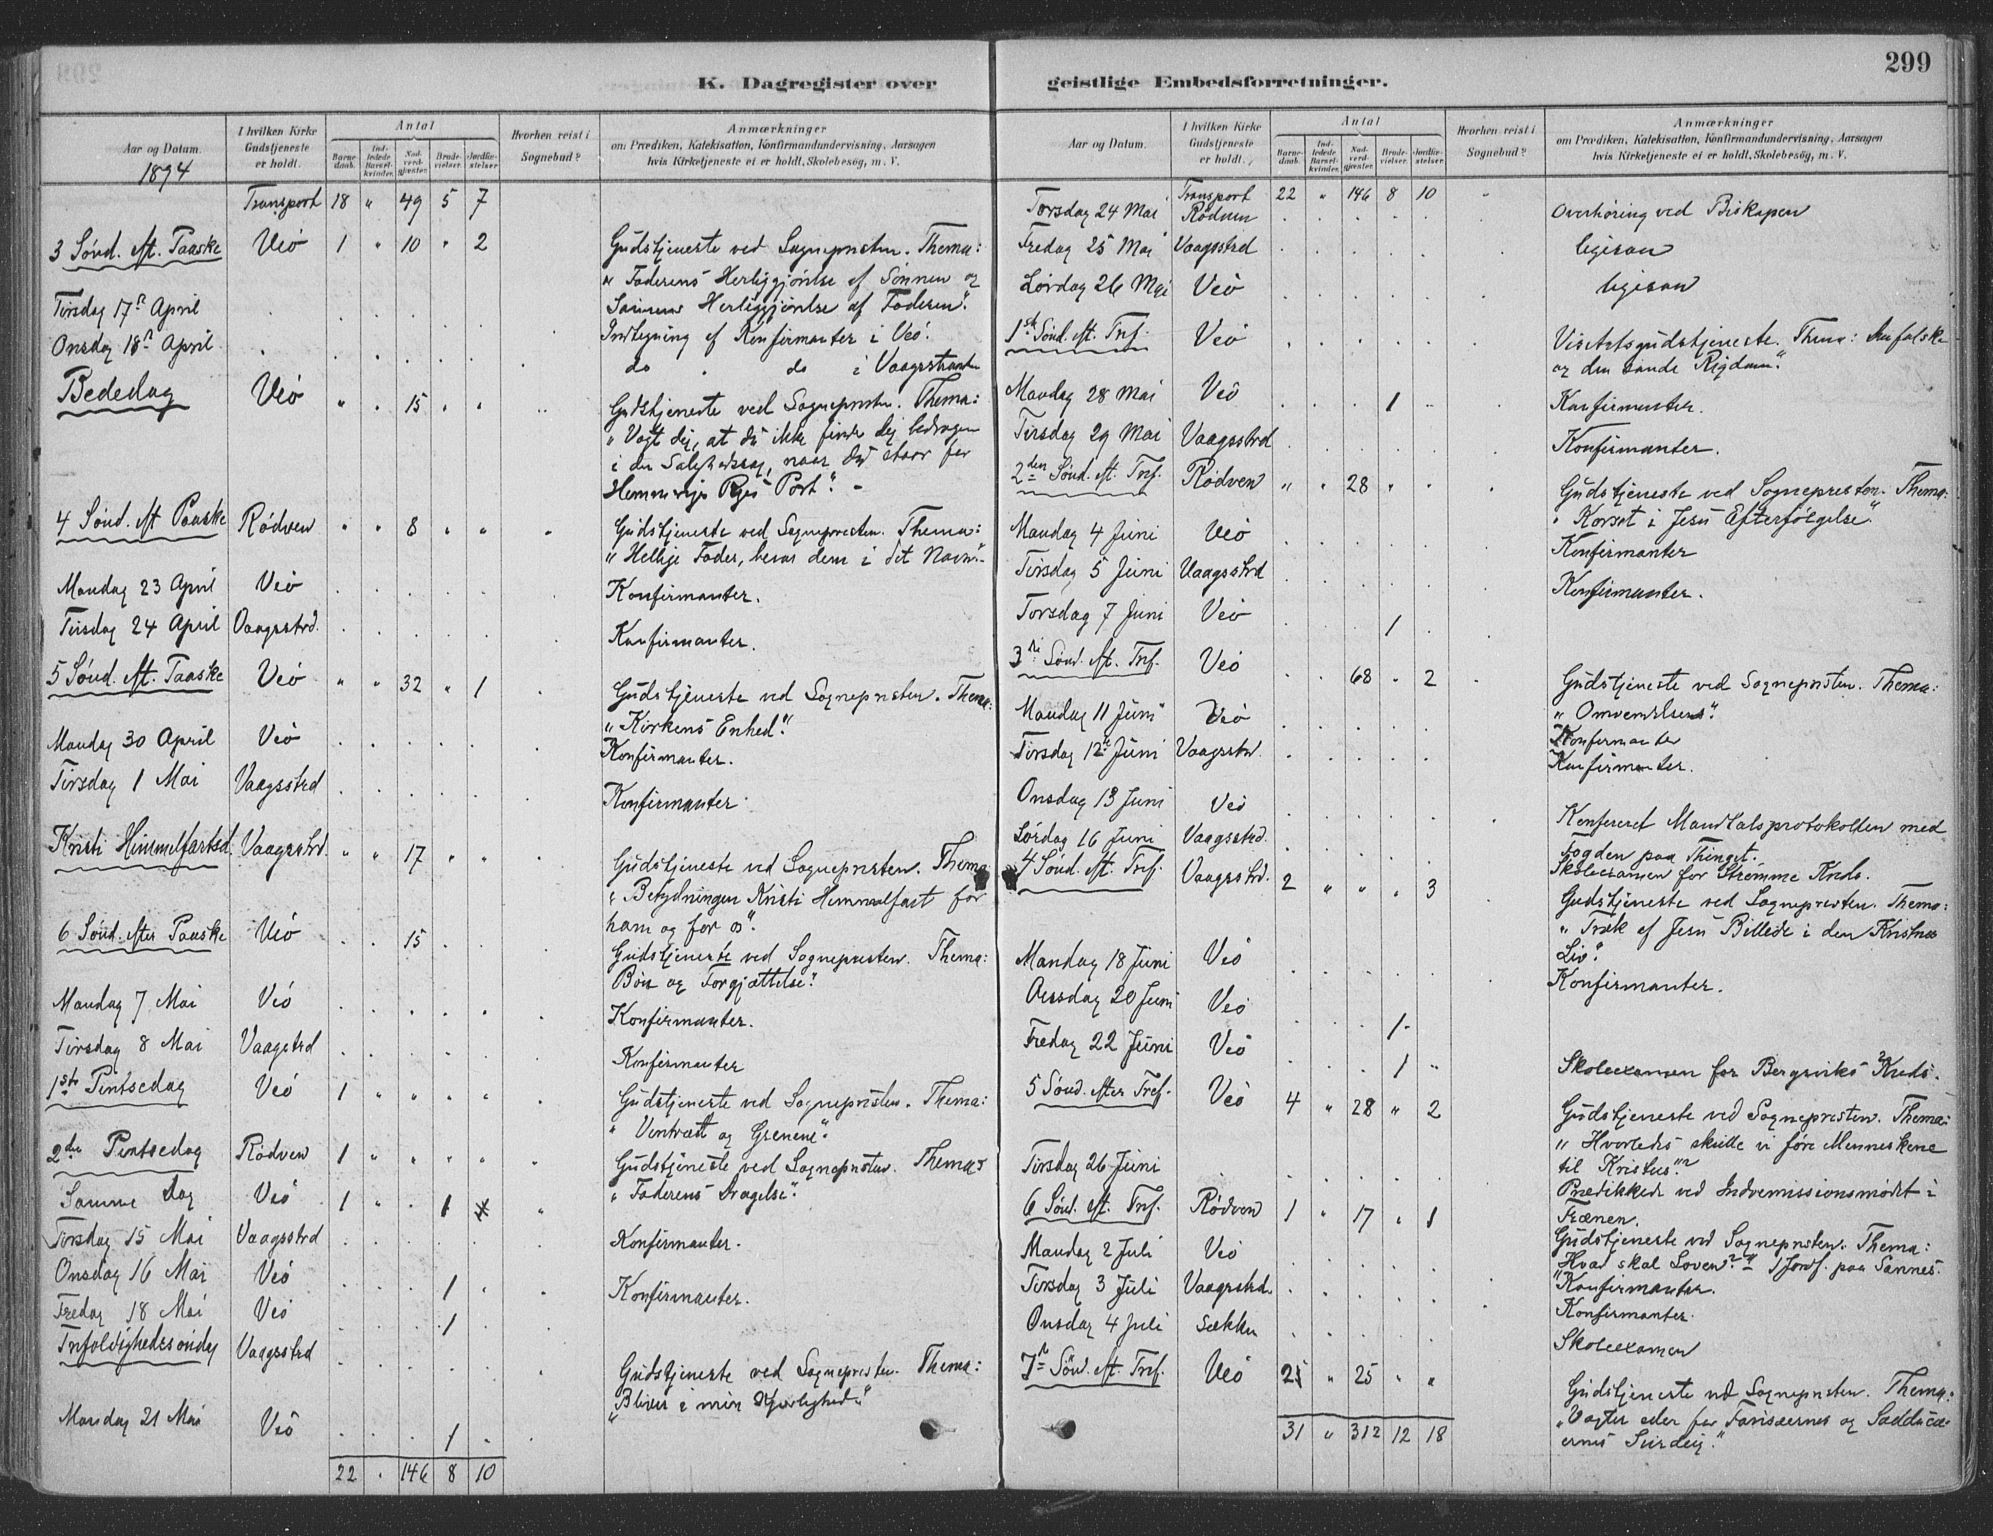 K. Dagregister over
Aar og Datum.
1894
I hvilken Kirke Gudstjeneste er holdt.
Antal
Barnedaab.
Indledede Barselkvinder.
Nadverdgjæster.
Brudevielser.
Jordfæstelser.
Hvorhen reist i Sognebud?
Anmærkninger
om Prædiken, Katekisation, Konfirmandundervisning, Aarsagen
hvis Kirketjeneste ei er holdt, Skolebesøg, m. V.
Transport 18 " 49 5 7
3 Sønd. eft. Paaske Veö 1 " 10 " 2 Gudstjeneste ved Sognepresten. Thema:
"Faderens Herliggjörelse af Sönnen og
Sönnens Herliggjörelse af Faderen".
Tirsdag 17de April Indtegning af Konfirmanter i Veö.
Onsdag 18de April do do i Vaagstranden
Bededag Veö " . 15 " " Gudstjeneste ved Sognepresten. Thema:
"Vogt dig, at du ikke finder dig bedragen
i din Salighedssag, naar du staar for
Himmeriges Riges Port". -
4 Sønd. eft Paaske Rödven " " 8 " " Gudstjeneste ved Sognepresten. Thema:
"Hellige Fader, bevar dem i dit Navn".
Mandag 23 April Veö Konfirmanter.
Tirsdag 24 April Vaagsstrd. Konfirmanter.
5 Sønd. eft. Paaske Veö " " 32 " 1 Gudstjeneste ved Sognepresten. Thema:
"Kirkens Enhed".
Mandag 30 April Veö Konfirmanter.
Tirsdag 1 Mai Vaagsstrd Konfirmanter.
Kristi Himmelfartsd. Vaagsstrd. " " 17 " " Gudstjeneste ved Sognepresten. Thema
"Betydningen Kristi Himmelfart for
ham og for os".
6 Sønd. efter Paaske Veö . . 15 . . Gudstjeneste ved Sognepresten. Thema:
Bön og Forgjættelse".
Mandag 7 Mai Veö Konfirmanter.
Tirsdag 8 Mai Vaagstrd Konfirmanter
1ste Pintsedag Veö 1 " " " " Gudstjeneste ved Sognepresten. Thema:
"Vintræet og Grenene".
2den Pintsedag Rödven 1 " " " " Gudstjeneste ved Sognepresten. Thema:
"Faderens Dragelse".
Samme Dag Veö 1 " . 1
Tirsdag 15 Mai Vaagsstrd Konfirmanter.
Onsdag 16 Mai Veö 1 Konfirmanter.
Fredag 18 Mai Veö 1
Trefoldighedssöndag Vaagsstrd Gudstjeneste ved Sognepresten. Thema:
"Bliver i min Kjærlighed".
Mandag 21 Mai Veö 1
22 . 146 8 10
geistlige Embedsforretninger.
299
Aar og Datum.
I hvilken Kirke Gudstjeneste er holdt.
Antal
Barnedaab.
Indledede Barselkvinder.
Nadverdgjæster.
Brudevielser.
Jordfæstelser.
Hvorhen reist i Sognebud?
Anmærkninger
om Prædiken, Katekisation, Konfirmandundervisning, Aarsagen
hvis Kirketjeneste ei er holdt, Skolebesøg, m. V.
Transport 22 " 146 8 10
Torsdag 24 Mai Rödven Overhöring ved Biskopen
Fredag 25 Mai Vaagsstrd ligesan
Lördag 26 Mai Veö ligesan
1ste Sønd. eft. Tref. Veö Visitatsgudstjeneste. Thema: Den falske
og den sande Rigdom".
Mandag 28 Mai Veö 1 Konfirmanter.
Tirsdag 29 Mai Vaagsstrd Konfirmanter.
2den Sønd. eft. Tref. Rödven " " 28 " " Gudstjeneste ved Sognepresten. Thema:
"Korset i Jesu Efterfölgelse".
Mandag 4 Juni Veö Konfirmanter
Tirsdag 5 Juni Vaagsstrd Konfirmanter.
Torsdag 7 Juni Veö 1
3die Sønd. eft. Tref. Veö . . 68 " 2 Gudstjeneste ved Sognepresten. Thema:
"Omvendelsens".
Mandag 11 Juni Veö Konfirmanter
Tirsdag 12te Juni Vaagsstrd. Konfirmanter.
Onsdag 13 Juni Veö Konfereret Mandtalsprotokollen med
Fogden paa Thinget.
Lördag 16 Juni Vaagsstrd. Skoleexamen for Strömme Kreds.
4 Sønd. eft. Tref. Vaagsstrd. 2 " " " 3 Gudstjeneste ved Sognepresten. Thema:
"Træk af Jesu Billede i den Kristnes
Liv".
Mandag 18 Juni Veö Konfirmanter.
Onsdag 20 Juni Veö 1
Fredag 22 Juni Veö 1 " Skoleexamen for Bergsviks Kreds.
5 Sønd. efter Tref. Veö 4 " 28 " 2 Gudstjeneste ved Sognepresten. Thema:
"Hvorledes skulle vi före Menneskene
til Kristus"?
Tirsdag 26 Juni Prædikede ved Indremissionsmödet i
Frænen.
6 Sønd. eft. Tref. Rödven 1 " 17 " 1 Gudstjeneste ved Sognepresten. Thema:
"Hvad skal Loven"? 1 Jordf. paa Sannes.
Mandag 2 Juli Veö Konfirmanter.
Tirsdag 3 Juli Vaagsstrd. Konfirmanter.
Onsdag 4 Juli Sækken Skoleexamen
7de Sönd. eft. Tref. Veö 2 " 25 " " Gudstjeneste ved Sognepresten. Thema:
"Vogter eder for Farisæernes og Sadducæ-
ernes Surdeig".
31 " 312 12 18